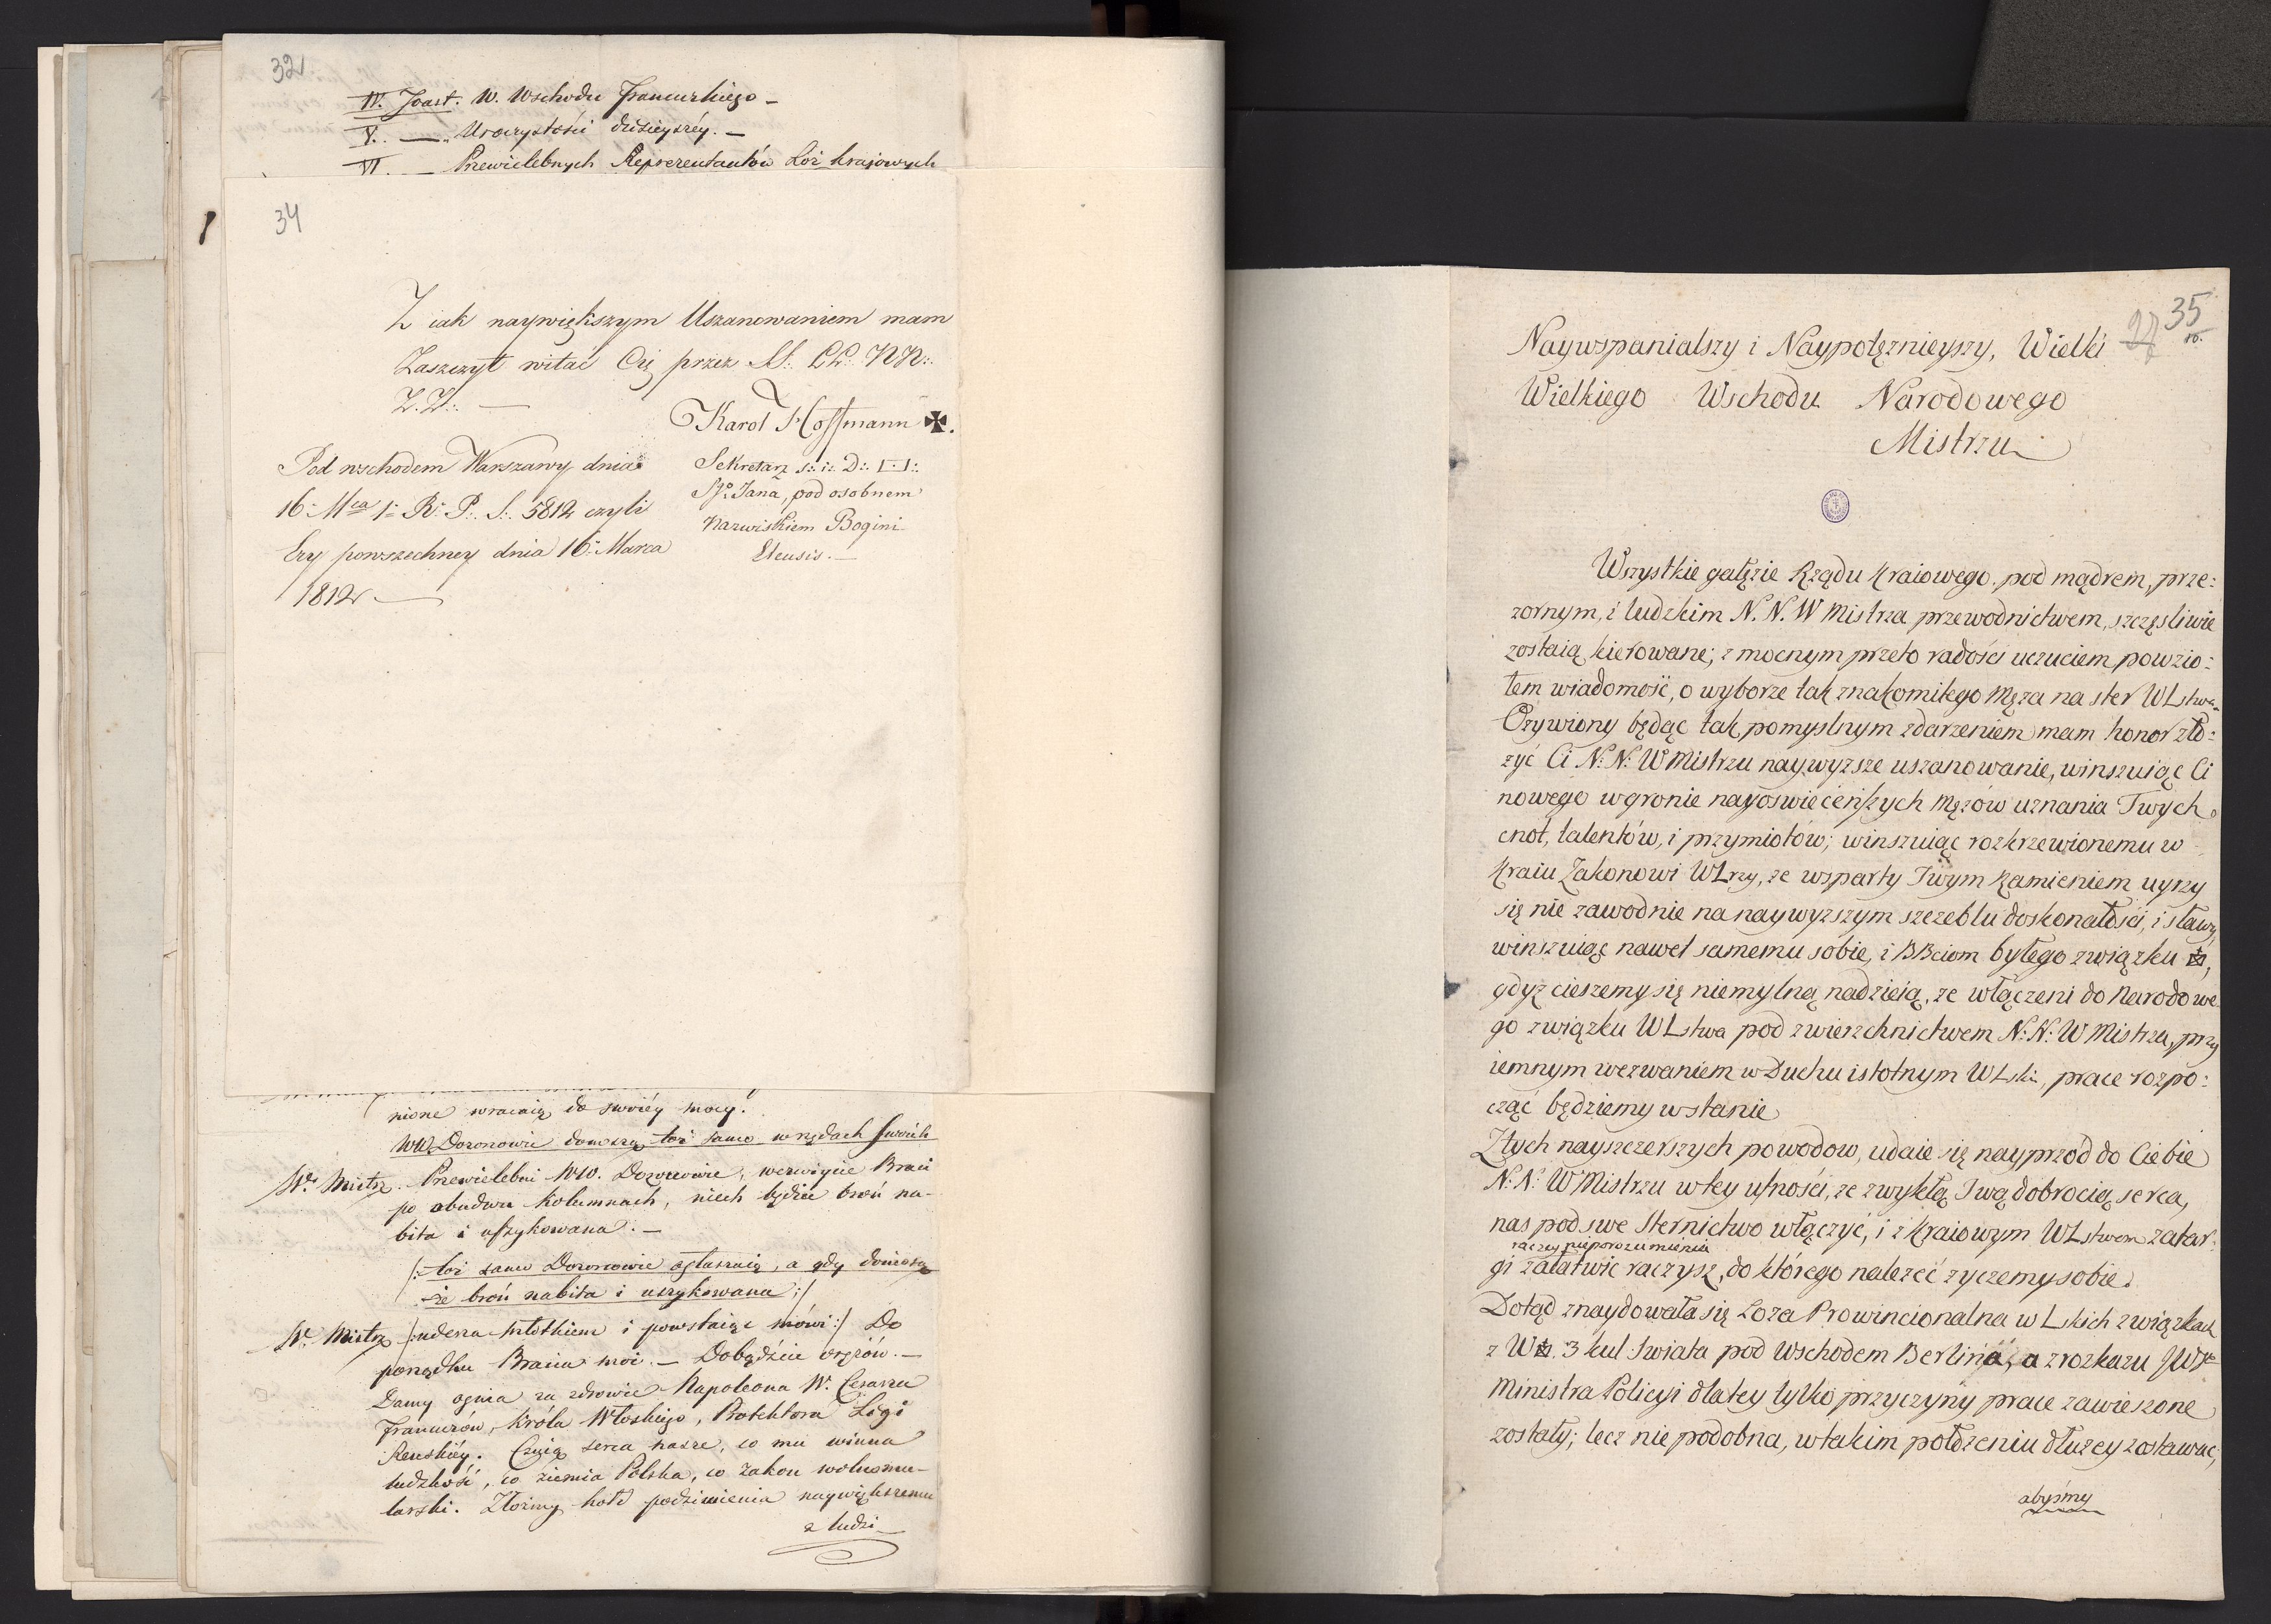 32
IV. Toast. W. Wschodu Francuzkiego –
V. — Uroczystości dzisieyszéy. –
VI. — Przewielebnych Reprezentantów Lóż krajowych
34
Z iak naywiększym Uszanowaniem mam
Zaszczyt witać Cię przez SS: LL: NN:
Z. Z:. —
Karol Hoffmann ✠.
Pod wschodem Warszawy dnia
16: Mca 1: R: P: S: 5812 czyli
Ery powszechney dnia 16: Marca
1812 —
Sekretarz s: i: D:
Sgo Jana, pod osobnem
Nazwiskiem Bogini
Eleusis. —
nione wracaią do swoiéy mocy.
WW. Dozorowie donoszą toż samo w rzędach swoich
W. Mistrz. Przewielebni WW. Dozorcowie, wezwiycie Braci
po obudwu Kolumnach, niech będzie broń na-
bita i uszykowana. –
/: toż samo Dozorcowie ogłaszaią, a gdy doniosą
że broń nabita i uszykowana :/
W. Mistrz /: uderza młotkiem i powstaiąc mówi :/ Do
porządku Bracia moi. – Dobądźcie orężów. –
Damy ognia za zdrowie Napoleona W. Cesarza
Francuzów, Króla Włoskiego, Protektora Ligi
Reńskiéy. Czuią serca nasze, co mu winna
ludzkość, co ziemia Polska, co zakon wolnomu-
larski. Złóżmy hołd podziwienia naywiększemu
z ludzi
35
27
Naywspanialszy i Naypotężnieyszy, Wielki
Wielkiego Wschodu Narodowego
Mistrzu
Wszystkie gałęzie Rządu kraiowego, pod mądrem, prze:
zornym, i ludzkim N. N. W Mistrza przewodnictwem, szczęsliwie
zostaią kierowane; z mocnym przeto radości uczuciem powzio:
łem wiadomość, o wyborze tak znakomitego Męża na ster WLstwa.
Ożywiony będąc tak pomyslnym zdarzeniem mam honor zło:
żyć Ci N: N: W Mistrzu naywyższe uszanowanie, winszuiąc Ci
nowego w gronie nayoswieceńszych Mężów uznania Twych
cnot, talentów, i przymiotów; winszuiąc rozkrzewionemu w
kraiu Zakonowi WLrzy, że wsparty Twym Ramieniem uyrzy
się nie zawodnie na naywyższym szczeblu doskonałości, i sławy,
winszuiąc nawet samemu sobie, i BBciom byłego związku,
gdyż cieszemy się niemylną nadzieią, że włączeni do Narodowe
go związku WLstwa pod zwierzchnictwem N: N: W Mistrza, przy
iemnym wezwaniem w Duchu istotnym WLskim, prace rozpo:
cząć będziemy wstanie
Z tych nayszczerszych powodow, udaie się nayprzód do Ciebie
N: N: W Mistrzu w tey ufności, że zwykłą Twą dobrocią serca,
nas pod swe Sternictwo włączyć, i z Kraiowym WLstwem zatar:
raczey nieporozumienia
gi załatwić raczysz, do którego należeć życzemy sobie.
Dotąd znaydowała się Loża Prowincionalna w Lskich związkach
z W 3 kul Swiata pod Wschodem Berlina, a z rozkazu JW
Ministra Policyi dla tey tylko przyczyny prace zawieszone
zostały; lecz nie podobna, w takim położeniu dłużey zostawać,
abyśmy